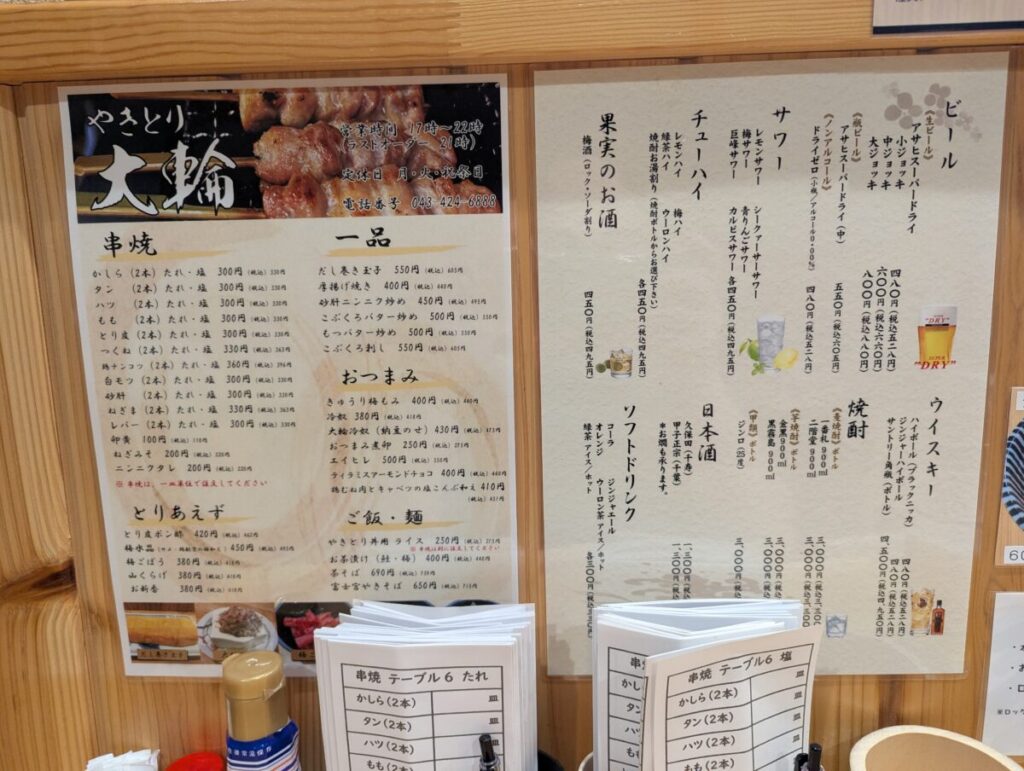 やきとり
大輪
営業時間 17時～22時
(ラストオーダー 21時)
定休日 月・火・祝祭日
電話番号 043-424-6888
串焼
かしら (2本) たれ・塩 300円 (税込) 330円
タン (2本) たれ・塩 300円 (税込) 330円
ハツ (2本) たれ・塩 300円 (税込) 330円
もも (2本) たれ・塩 300円 (税込) 330円
とり皮 (2本) たれ・塩 300円 (税込) 330円
つくね (2本) たれ・塩 330円 (税込) 363円
鶏ナンコツ (2本) たれ・塩 360円 (税込) 396円
白モツ (2本) たれ・塩 300円 (税込) 330円
砂肝 (2本) たれ・塩 300円 (税込) 330円
ねぎま (2本) たれ・塩 330円 (税込) 363円
レバー (2本) たれ・塩 300円 (税込) 330円
卵黄 100円 (税込) 110円
ねぎみそ 200円 (税込) 220円
ニンニクタレ 200円 (税込) 220円
※ 串焼は、一皿単位で注文してください
とりあえず
とり皮ポン酢 420円 (税込) 462円
梅水晶 450円 (税込) 495円
梅ごぼう 380円 (税込) 418円
山くらげ 380円 (税込) 418円
お新香 380円 (税込) 418円
一品
だし巻き玉子 550円 (税込) 605円
厚揚げ焼き 400円 (税込) 440円
砂肝ニンニク炒め 450円 (税込) 495円
こぶくろバター炒め 500円 (税込) 550円
もつバター炒め 500円 (税込) 550円
こぶくろ刺し 550円 (税込) 605円
おつまみ
きゅうり梅もみ 400円 (税込) 440円
冷奴 380円 (税込) 418円
大輪冷奴 (納豆のせ) 430円 (税込) 473円
おつまみ煮卵 250円 (税込) 275円
エイヒレ 500円 (税込) 550円
ティラミスアーモンドチョコ 400円 (税込) 440円
鶏むね肉とキャベツの塩こんぶ和え 410円
(税込) 451円
ご飯・麺
やきとり丼用 ライス 250円 (税込) 275円
※ 串焼は別に注文してください
お茶漬け (鮭・梅) 400円 (税込) 440円
茶そば 690円 (税込) 759円
富士宮やきそば 650円 (税込) 715円
だし巻き玉子
ビール
《生ビール》
アサヒスーパードライ
小ジョッキ 四八〇円(税込五二八円)
中ジョッキ 六〇〇円(税込六六〇円)
大ジョッキ 八〇〇円(税込八八〇円)
《瓶ビール》
アサヒスーパードライ(中) 五五〇円(税込六〇五円)
《ノンアルコール》
ドライゼロ(小瓶/アルコール0.00%) 四八〇円(税込五二八円)
"DRY"
SUPER
"DRY"
サワー
レモンサワー シークァーサーサワー
梅サワー 青りんごサワー
巨峰サワー カルピスサワー 各四五〇円(税込四九五円)
チューハイ
レモンハイ 梅ハイ
緑茶ハイ ウーロンハイ
焼酎お湯割り(焼酎ボトルからお選び下さい) 各四五〇円(税込四九五円)
果実のお酒
梅酒(ロック・ソーダ割り) 四五〇円(税込四九五円)
ウイスキー
ハイボール(ブラックニッカ) 四八〇円(税込五二八円)
ジンジャーハイボール 四八〇円(税込五二八円)
サントリー角瓶(ボトル) 四、五〇〇円(税込四、九五〇円)
焼酎
《麦焼酎》ボトル
一番札 900ml 三、〇〇〇円(税込三、三〇〇円)
二階堂 900ml 三、〇〇〇円(税込三、三〇〇円)
《芋焼酎》ボトル
金黒 900ml
黒霧島 900ml
《甲類》ボトル
ジンロ(25度)
日本酒
久保田(千寿)
甲子正宗(千葉)
*お燗も承ります。
ソフトドリンク
コーラ ジンジャエール
オレンジ ウーロン茶 アイス/ホット
緑茶 アイス/ホット 各三〇〇円(税込三三〇円)
串焼 テーブル6 たれ
かしら(2本) 皿
タン(2本) 皿
ハツ(2本) 皿
もも(2本)
串焼 テーブル6 塩
かしら(2本) 皿
タン(2本) 皿
ハツ(2本) 皿
もも(2本)